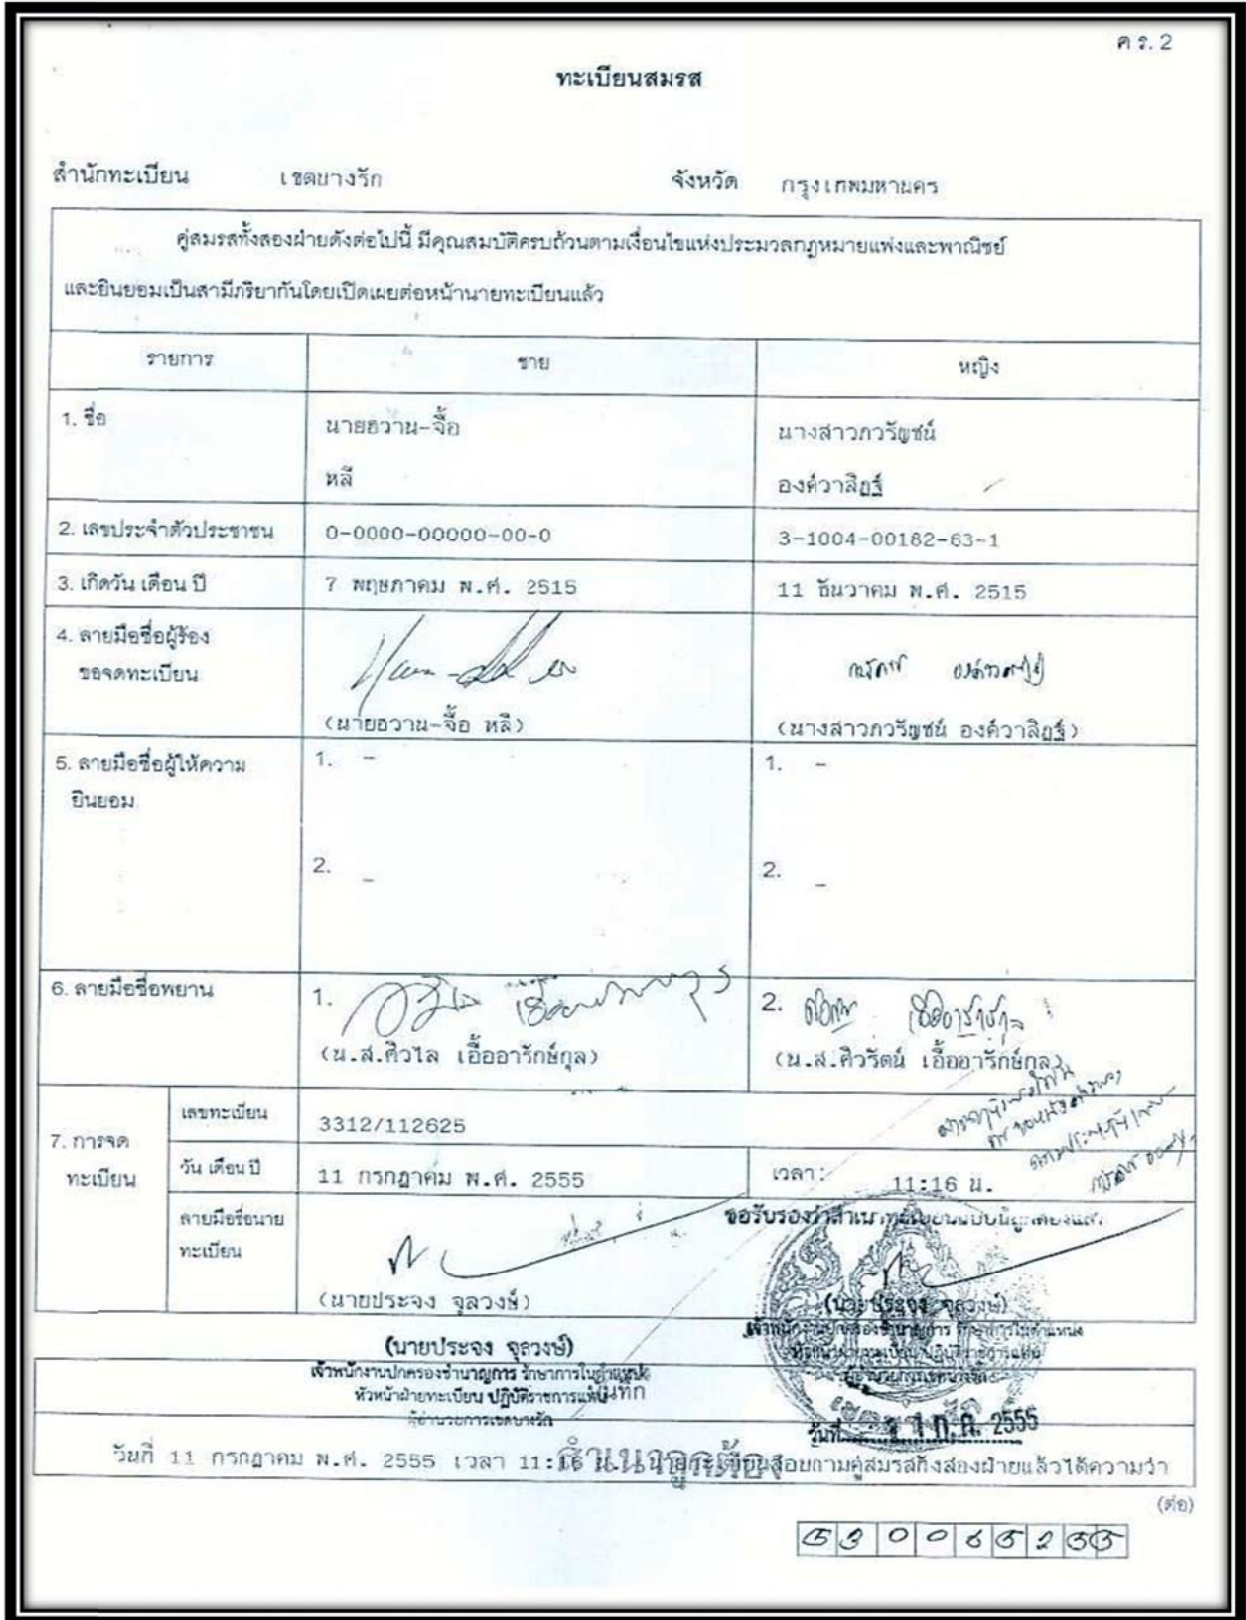 ค ร. 2
ทะเบียนสมรส
สำนักทะเบียน เขตบางรัก จังหวัด กรุงเทพมหานคร
คู่สมรสทั้งสองฝ่ายดังต่อไปนี้ มีคุณสมบัติครบถ้วนตามเงื่อนไขแห่งประมวลกฎหมายแพ่งและพาณิชย์
และยินยอมเป็นสามีภริยากันโดยเปิดเผยต่อหน้านายทะเบียนแล้ว
รายการ ชาย หญิง
1. ชื่อ นายฮวาน-จื้อ นางสาวภวรัญชน์
หลี องค์วาสิฏฐ์
2. เลขประจำตัวประชาชน 0-0000-00000-00-0 3-1004-00182-63-1
3. เกิดวัน เดือน ปี 7 พฤษภาคม พ.ศ. 2515 11 ธันวาคม พ.ศ. 2515
4. ลายมือชื่อผู้ร้อง
ขอจดทะเบียน
(นายฮวาน-จื้อ หลี) (นางสาวภวรัญชน์ องค์วาสิฏฐ์)
5. ลายมือชื่อผู้ให้ความ 1. – 1. –
ยินยอม
2. – 2. –
6. ลายมือชื่อพยาน 1. 2.
(น.ส.ศิวไล เอื้ออารักษ์กุล) (น.ส.ศิวรัตน์ เอื้ออารักษ์กุล)
7. การจด
ทะเบียน
เลขทะเบียน 3312/112625
วัน เดือน ปี 11 กรกฎาคม พ.ศ. 2555 เวลา: 11:16 น.
ลายมือชื่อนาย
ทะเบียน
ขอรับรองว่าสำเนาทะเบียนฉบับนี้ถูกต้องแล้ว
(นายประจง จุลวงษ์) (นายประจง จุลวงษ์)
(นายประจง จุลวงษ์)
เจ้าพนักงานปกครองชำนาญการ รักษาการในตำแหน่ง
หัวหน้าฝ่ายทะเบียน ปฏิบัติราชการแทน
ผู้อำนวยการเขตบางรัก
เจ้าพนักงานปกครองชำนาญการ รักษาการในตำแหน่ง
หัวหน้าฝ่ายทะเบียน ปฏิบัติราชการแทน
ผู้อำนวยการเขตบางรัก
บันทึก
เขตบางรัก
วันที่ 11 ก.ค. 2555
สำเนาถูกต้อง
วันที่ 11 กรกฎาคม พ.ศ. 2555 เวลา 11:16 น. นายทะเบียนสอบถามคู่สมรสทั้งสองฝ่ายแล้วได้ความว่า
(ต่อ)